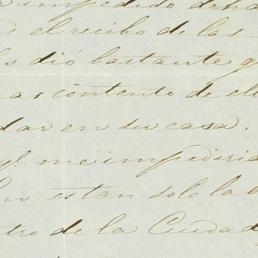 impedido de
el recibo de las
dió bastante q
contento de el
dar en su casa.
qe. me impediria
n estan solo la
tro de la Ciudad